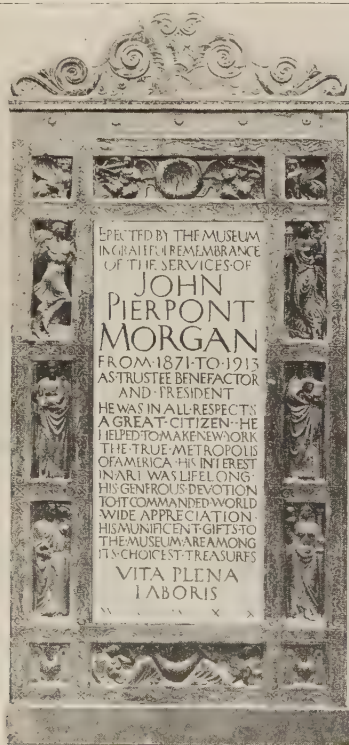 ERECTED BY THE MUSEUM
IN GRATEFUL REMEMBRANCE
OF THE SERVICES·OF
JOHN
PIERPONT
MORGAN
FROM·1871·TO·1913
AS·TRUSTEE BENEFACTOR
AND·PRESIDENT
HE WAS IN ALL·RESPECTS
A GREAT·CITIZEN··HE
HELPED TO MAKE NEW YORK
THE TRUE METROPOLIS
OF AMERICA·HIS INTEREST
IN ART WAS LIFELONG·
HIS GENEROUS·DEVOTION
TO IT COMMANDED·WORLD
WIDE APPRECIATION·
HIS MUNIFICENT·GIFTS·TO
THE·MUSEUM·ARE AMONG
ITS·CHOICEST·TREASURES
VITA PLENA
LABORIS